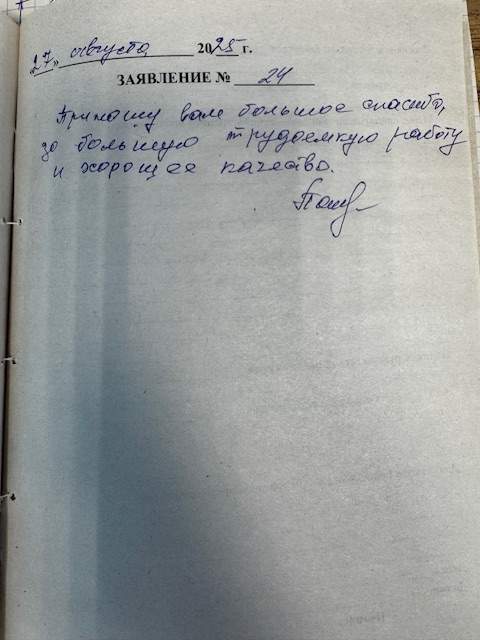 27» августа 2025 г.
ЗАЯВЛЕНИЕ № 24
Приношу вам большое спасибо,
за большую трудоемкую работу
и хорошее качество.